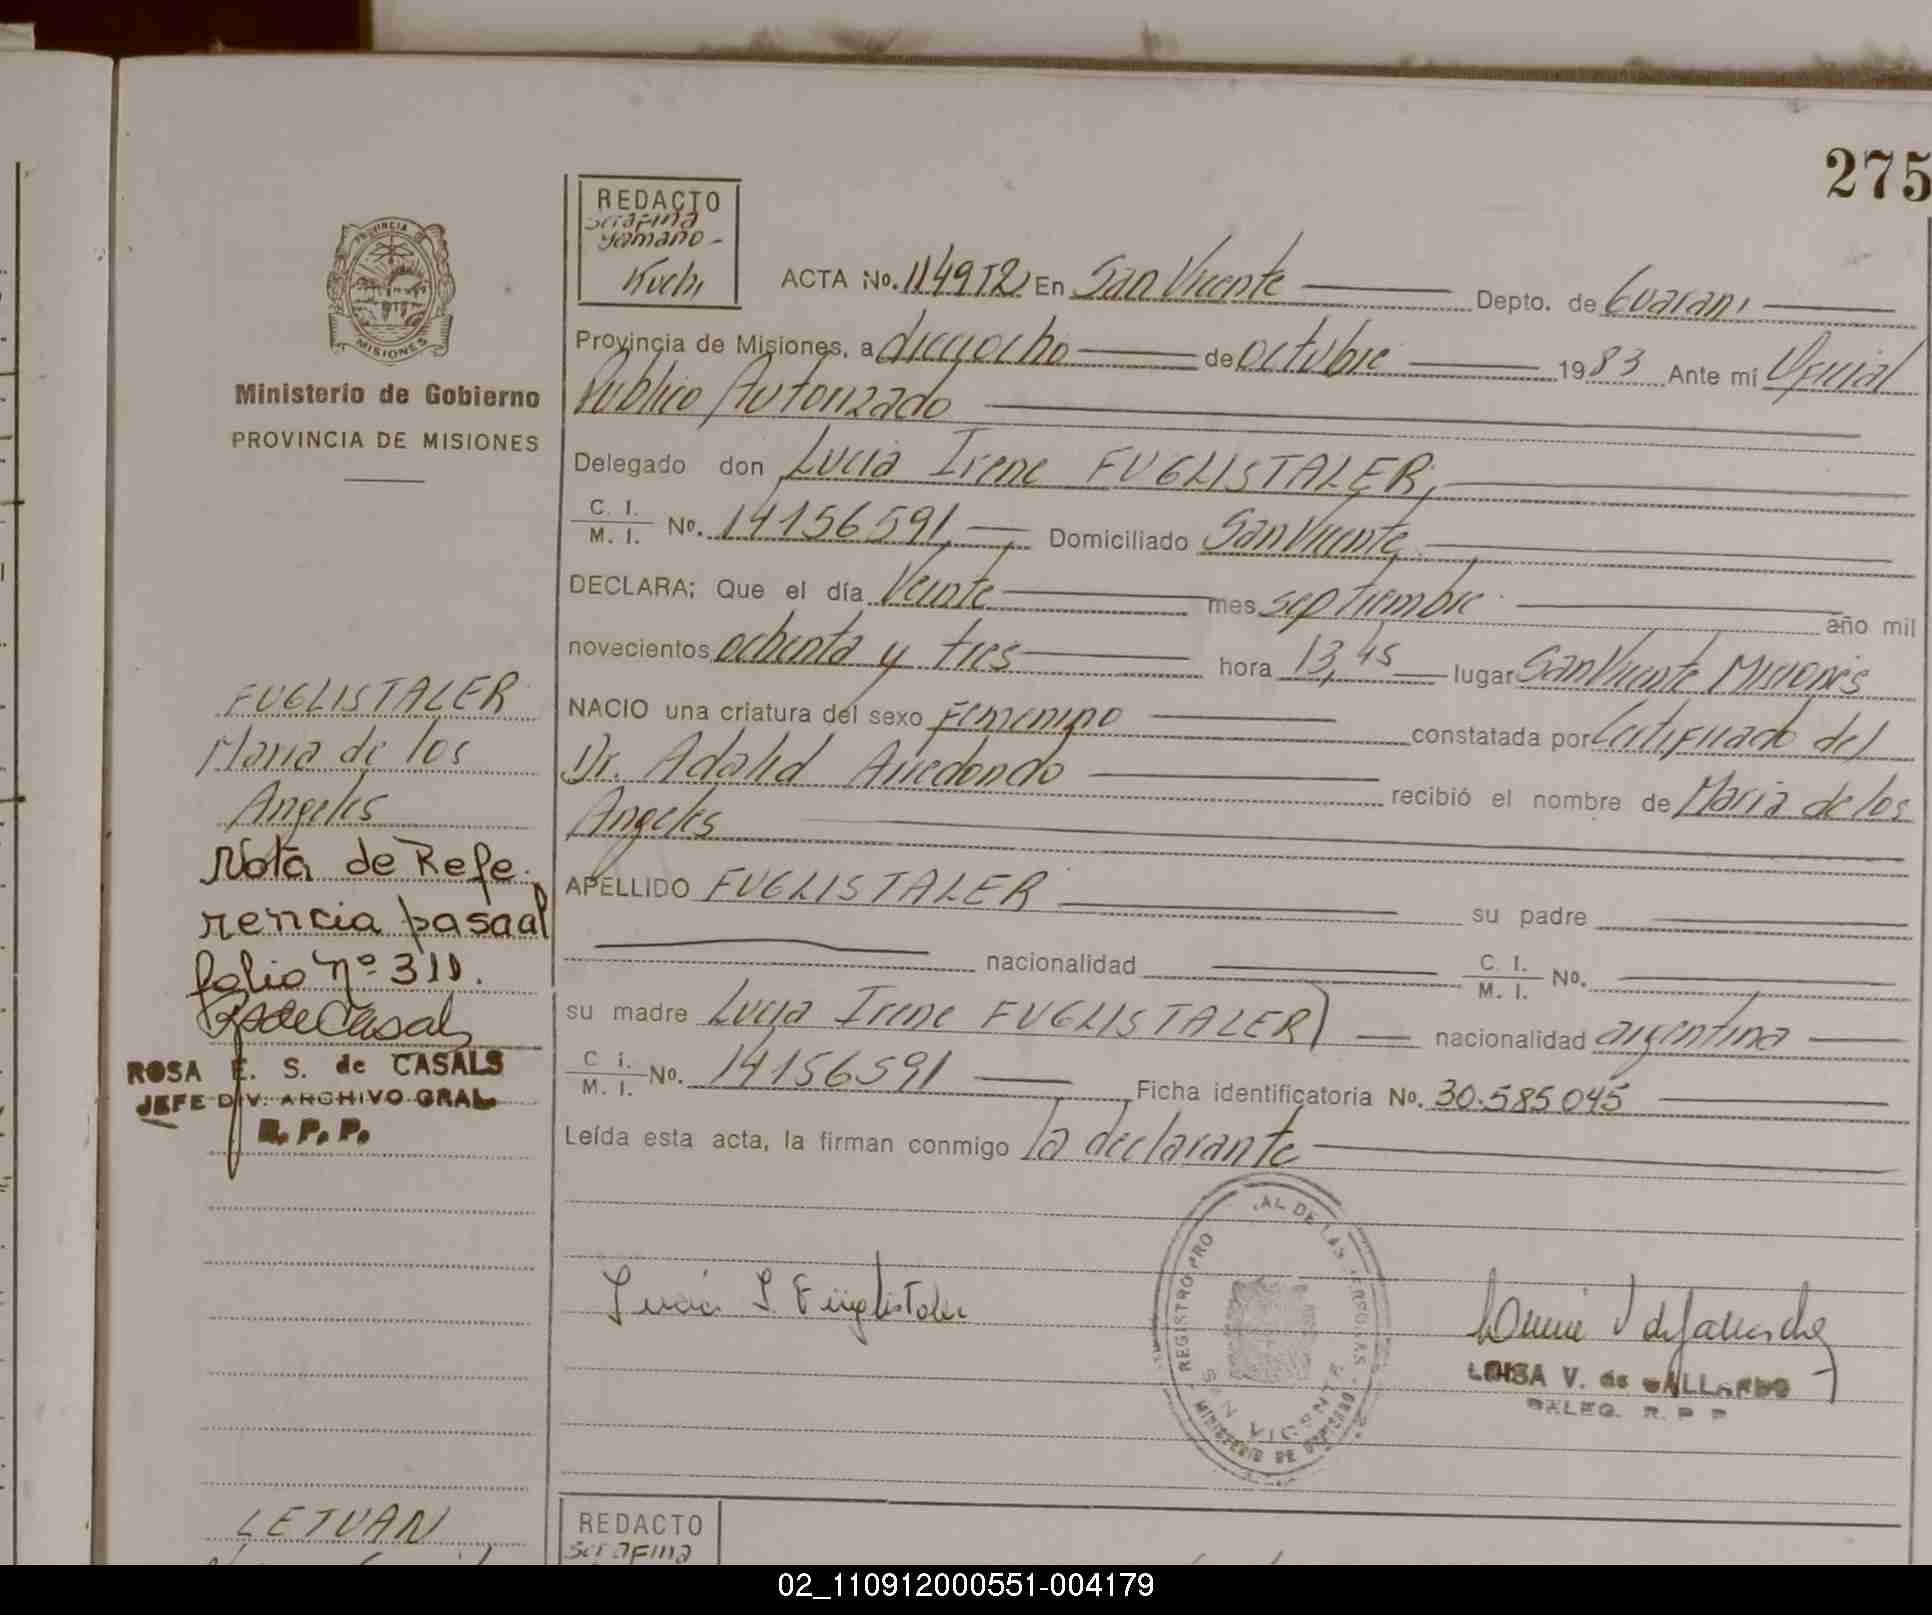 275
REDACTO
Serafina
Yamano-
Kuchi
PROVINCIA DE
MISIONES
Ministerio de Gobierno
PROVINCIA DE MISIONES
ACTA No. En San Vicente Depto. de Guarani
Provincia de Misiones, a dieciocho de octubre 1983 Ante mí Oficial
Publico Autorizado
Delegado don Lucia Irene FUGLISTALER,
C. I. / M. I. No. 14156591 Domiciliado San Vicente
DECLARA; Que el día Veinte mes septiembre año mil
novecientos ochenta y tres hora 13,45 lugar San Vicente Misiones
NACIO una criatura del sexo Femenino constatada por Certificado del
Dr. Adalid Arredondo recibió el nombre de Maria de los
Angeles
APELLIDO FUGLISTALER su padre
nacionalidad C. I. / M. I. No.
su madre Lucia Irene FUGLISTALER) nacionalidad argentina
C. I. / M. I. No. 14156591 Ficha identificatoria No. 30.585045
Leída esta acta, la firman conmigo la declarante
FUGLISTALER
Maria de los
Angeles
Nota de Refe-
rencia pasa al
folio nº 311.
RSdeCasals
ROSA E. S. de CASALS
JEFE DIV. ARCHIVO GRAL.
R. P. P.
Lucia I Füglistaler
REGISTRO PRO AL DE LAS PERSONAS
SAN VICENTE
MINISTERIO DE GOBIERNO
LUISA V. de GALLARDO
DELEG. R. P. P.
LETUAN
REDACTO
Serafina
02_110912000551-004179